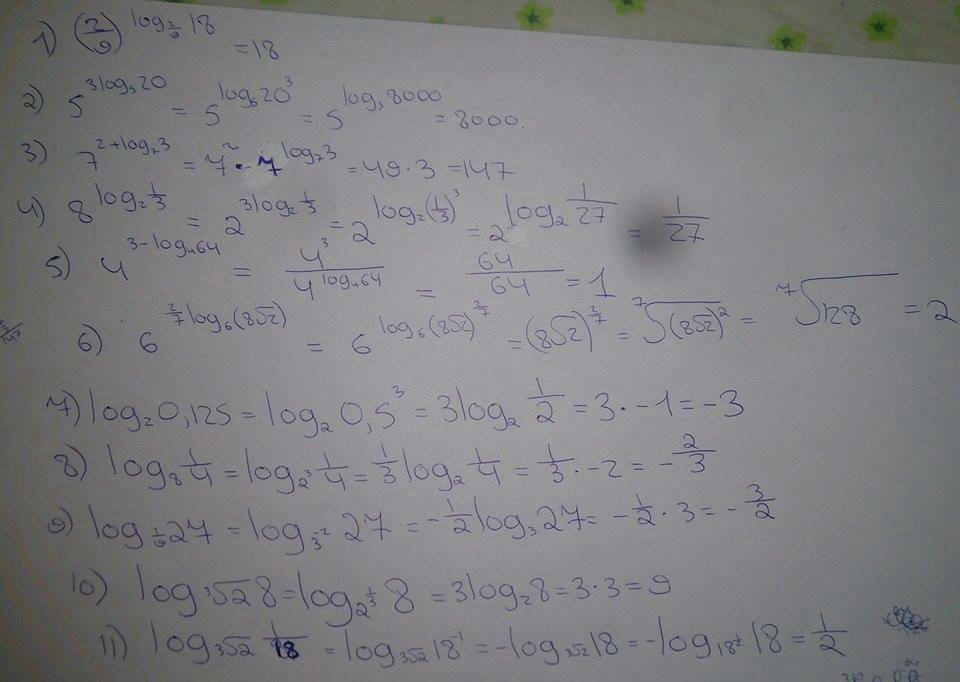 1) (2/9)^(log_(2/9) 18) = 18
2) 5^(3log_5 20) = 5^(log_5 20^3) = 5^(log_5 8000) = 8000.
3) 7^(2+log_7 3) = 7^2 · 7^(log_7 3) = 49·3 = 147
4) 8^(log_2 1/3) = 2^(3log_2 1/3) = 2^(log_2 (1/3)^3) = 2^(log_2 1/27) = 1/27
5) 4^(3-log_4 64) = 4^3/4^(log_4 64) = 64/64 = 1
6) 6^(2/7 log_6 (8√2)) = 6^(log_6 (8√2)^(2/7)) = (8√2)^(2/7) = ⁷√(8√2)^2 = ⁷√128 = 2
7) log_2 0,125 = log_2 0,5^3 = 3log_2 1/2 = 3·-1 = -3
8) log_8 1/4 = log_(2^3) 1/4 = 1/3 log_2 1/4 = 1/3 · -2 = -2/3
9) log_(1/9) 27 = log_(3^-2) 27 = -1/2 log_3 27 = -1/2 · 3 = -3/2
10) log_(³√2) 8 = log_(2^(1/3)) 8 = 3log_2 8 = 3·3 = 9
11) log_(3√2) 1/18 = log_(3√2) 18^-1 = -log_(3√2) 18 = -log_(18^(1/2)) 18 = 1/2